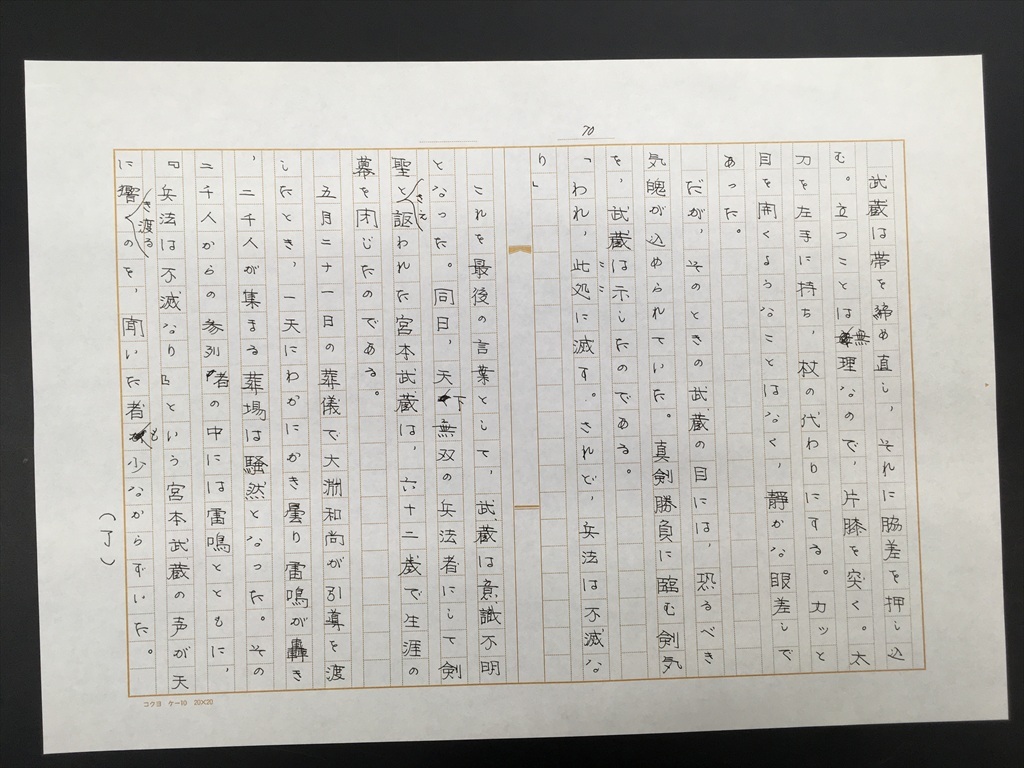 70
武蔵は帯を締め直し、それに脇差を押し込
む。立つことは無理なので、片膝を突く。太
刀を左手に持ち、杖の代わりにする。カッと
目を開くるうなことはなく、静かな眼差しで
あった。
だが、そのときの武蔵の目には、恐るべき
気魄が込められていた。真剣勝負に臨む剣気
を、武蔵は示したのである。
「われ、此処に滅す。されど、兵法は不滅な
り」
これを最後の言葉として、武蔵は意識不明
となった。同日、天下無双の兵法者にして剣
聖とさえ謳われた宮本武蔵は、六十二歳で生涯の
幕を閉じたのである。
五月二十一日の葬儀で大淵和尚が引導を渡
したとき、一天にわかにかき曇り雷鳴が轟き
、二千人が集まる葬場は騒然となった。その
二千人からの参列者の中には雷鳴とともに、
『兵法は不滅なり』という宮本武蔵の声が天
に響き渡るのを、聞いた者も少なからずいた。
(了)
コクヨ ケー10 20×20